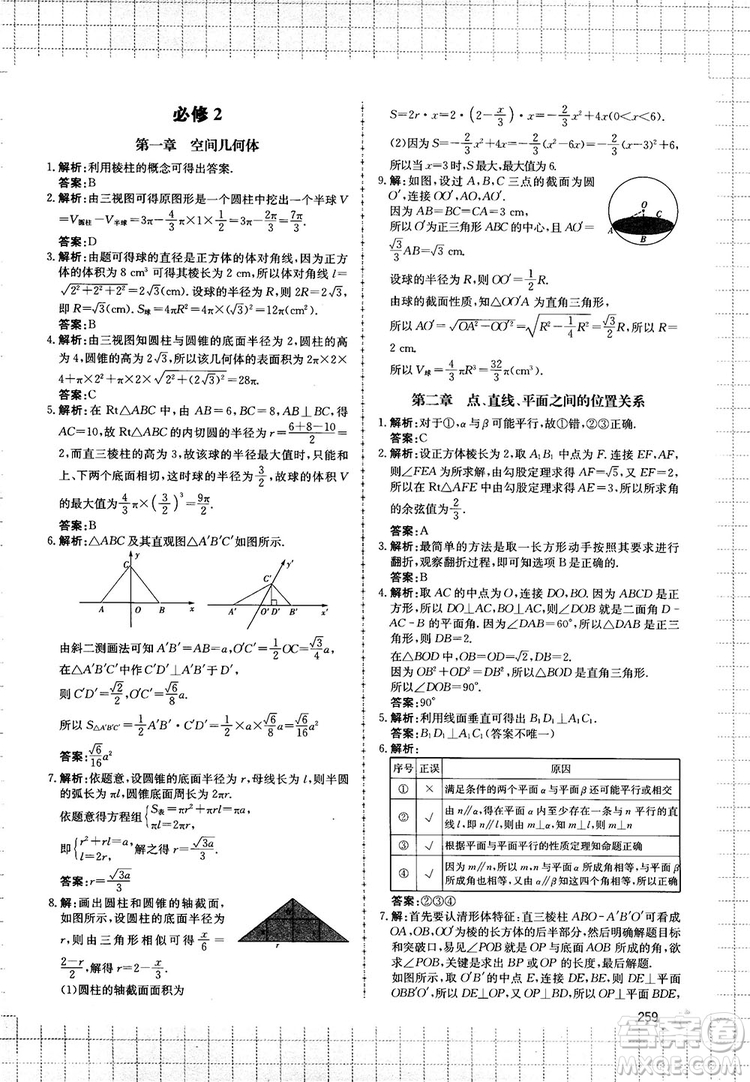 必修 2
第一章 空间几何体
1. 解析:利用棱柱的概念可得出答案.
答案:B
2. 解析:由三视图可得原图形是一个圆柱中挖出一个半球 V
=V圆柱-V半球=3π-4/3π×1×1/2=3π-2π/3=7π/3.
答案:D
3. 解析:由题可得球的直径是正方体的体对角线,因为正方
体的体积为 8 cm³ 可得棱长为 2 cm,所以体对角线 l=
√(2²+2²+2²)=2√3(cm). 设球的半径为 R,则 2R=2√3,
即 R=√3(cm). S球=4πR²=4π(√3)²=12π(cm²).
答案:B
4. 解析:由三视图知圆柱与圆锥的底面半径为 2,圆柱的高
为 4,圆锥的高为 2√3,所以该几何体的表面积为 2π×2×
4+π×2²+π×2×√(2²+(2√3)²)=28π.
答案:C
5. 解析:在 Rt△ABC 中,由 AB=6,BC=8,AB⊥BC,得
AC=10,故 Rt△ABC 的内切圆的半径为 r=(6+8-10)/2
=2,而直三棱柱的高为 3,此时球的直径为 3 且与直棱柱的
上、下两个底面相切,这时球的半径为 3/2,故球的体积 V
的最大值为 4/3π×(3/2)³=9π/2.
答案:B
6. 解析:△ABC 及其直观图△A′B′C′如图所示.
y C A O B x
y′ C′ A′ D′ B′ x′
由斜二测画法可知 A′B′=AB=a,O′C′=1/2OC=√3/4a,
在△A′B′C′中作 C′D′⊥A′B′于 D′,
则 C′D′=√2/2,O′C′=√6/8a.
所以 S△A′B′C′=1/2A′B′·C′D′=1/2×a×√6/8a=√6/16a².
答案:√6/16a²
7. 解析:依题意,设圆锥的底面半径为 r,母线长为 l,半圆
的弧长为 πl,底面圆的周长为 2πr.
依题意得方程组{S表=πr²+πrl=πa, πl=2πr,
即{r²+rl=a, l=2r, 解之得 r=√(3a)/3.
答案:r=√(3a)/3
8. 解:画出圆柱和圆锥的轴截面,
如图所示,设圆柱的底面半径为
r,则由三角形相似可得 x/6=
(2-r)/2,解得 r=2-x/3.
(1)圆柱的轴截面面积为
S=2r·x=2·(2-x/3)·x=-2/3x²+4x(0<x<6).
(2)因为 S=-2/3x²+4x=-2/3(x²-6x)=-2/3(x-3)²+6,
所以当 x=3 时,S 最大,最大值为 6.
9. 解:如图,设过 A,B,C 三点的截面为圆
O′,连接 OO′,AO′,AO.
因为 AB=BC=CA=3 cm,
所以 O′为正三角形 ABC 的中心,且 AO′=
√3/3AB=√3(cm).
O C A O′ B
设球的半径为 R,则 OO′=1/2R.
由球的截面性质,知△OO′A 为直角三角形,
所以 AO′=√(OA²-OO′²)=√(R²-1/4R²)=√3/2R,所以 R=
2 cm.
所以 V球=4/3πR³=32/3π(cm³).
第二章 点、直线、平面之间的位置关系
1. 解析:对于①,α 与 β 可能平行,故①错,②③正确.
答案:C
2. 解析:设正方体棱长为 2,取 A₁B₁ 中点为 F. 连接 EF,AF,
则∠FEA 为所求角,由勾股定理求得 AF=√5,EF=2.
所以在 Rt△AFE 中由勾股定理求得 AE=3,所以所求角
的余弦值为 2/3.
答案:A
3. 解析:最简单的方法是取一长方形动手按照其要求进行
翻折,观察翻折过程,可知选项 B 是正确的.
答案:B
4. 解析:取 AC 的中点为 O,连接 DO,BO. 因为 ABCD 是正
方形,所以 DO⊥AC,BO⊥AC,所以∠BOD 就是二面角 D-
AC-B 的平面角. 因为∠DAB=60°,所以 DB=2.
在△BOD 中,OB=OD=√2,DB=2.
因为 OB²+OD²=DB²,所以△DOB 为直角三角形.
所以∠DOB=90°.
答案:90°
5. 解析:利用线面垂直可得出 B₁D₁⊥A₁C₁.
答案:B₁D₁⊥A₁C₁(答案不唯一)
6. 解析:
序号 正误 原因
① × 满足条件的两个平面 α 与平面 β 还可能平行或相交
② √ 由 n∥α,可知在平面 α 内至少存在一条与 n 平行的
直线 l,即 n∥l,由 m⊥α,知 m⊥l,所以 m⊥n
③ √ 根据平面与平面平行的性质定理知命题正确
④ √ 因为 m∥n,所以 m,n 与平面 α 所成角相等,平面 β
∥平面 α,所以 m 与平面 α 所成角和 n 与平面 β 所
成角相等
答案:②③④
7. 解:首先要认清形体特征:直三棱柱 ABO-A′B′O′可看成
OA,OB,OO′为棱的长方体的后半部分,然后明确解题目
标和突破口,易见∠POB 就是 OP 与底面 AOB 所成的角,要
求∠POB,关键是求出 BP 或 OP 的长.
如图所示,取 O′B′的中点 E,连接 DE,OE,则 DE⊥平面
OBB′O′,所以 DE⊥OP,又 OP⊥BD,所以 OP⊥平面
259
答案圈
MXQE.COM